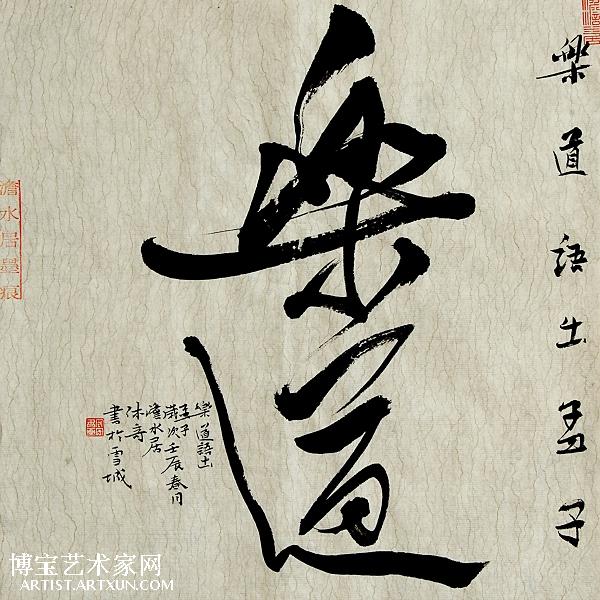 樂道語出孟子
樂道
樂道語出
孟子
歲次壬辰春月
澹水居
書於雪城
澹水居墨痕
博宝艺术家网
ARTIST.ARTXUN.COM